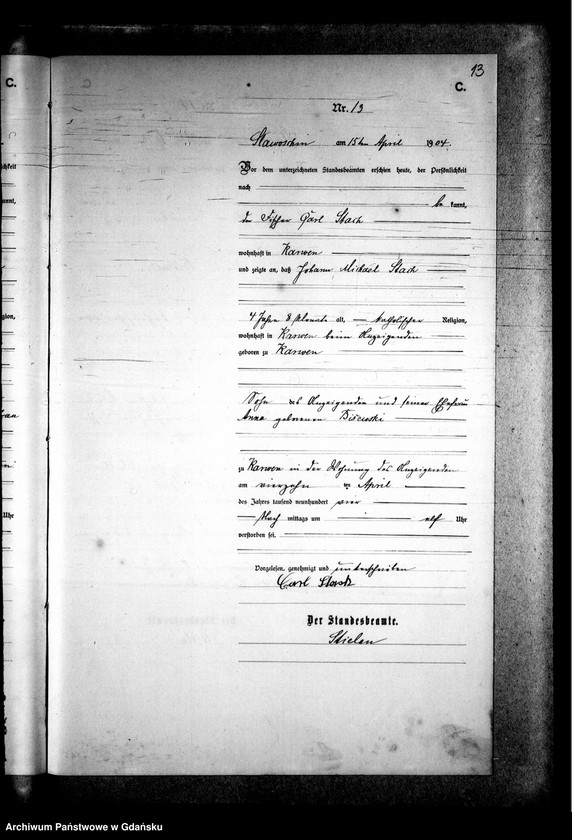 13
C.
C.
Nr. 13
Slawoschin am 15ten April 1904.
Vor dem unterzeichneten Standesbeamten erschien heute, der Persönlichkeit
nach
be kannt,
der Fischer Carl Stach
wohnhaft in Karwen
und zeigte an, daß Johann Michael Stach
4 Jahre 8 Monate alt, katholischer Religion,
wohnhaft in Karwen beim Anzeigenden
geboren zu Karwen
Sohn des Anzeigenden und seiner Ehefrau
Anna geborenen
zu Karwen in der Wohnung des Anzeigenden
am vierzehn ten April
des Jahres tausend neunhundert vier
Nach mittags um elf Uhr
verstorben sei.
Vorgelesen, genehmigt und unterschrieben
Carl Stach
Der Standesbeamte.
Archiwum Państwowe w Gdańsku